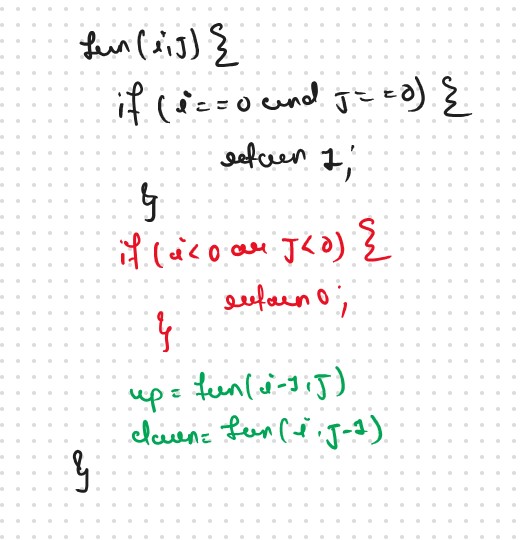 fun(i,J) {
if (i==0 and J==0) {
return 1;
}
if (i<0 or J<0) {
return 0;
}
up = fun(i-1,J)
down= fun(i,J-1)
}